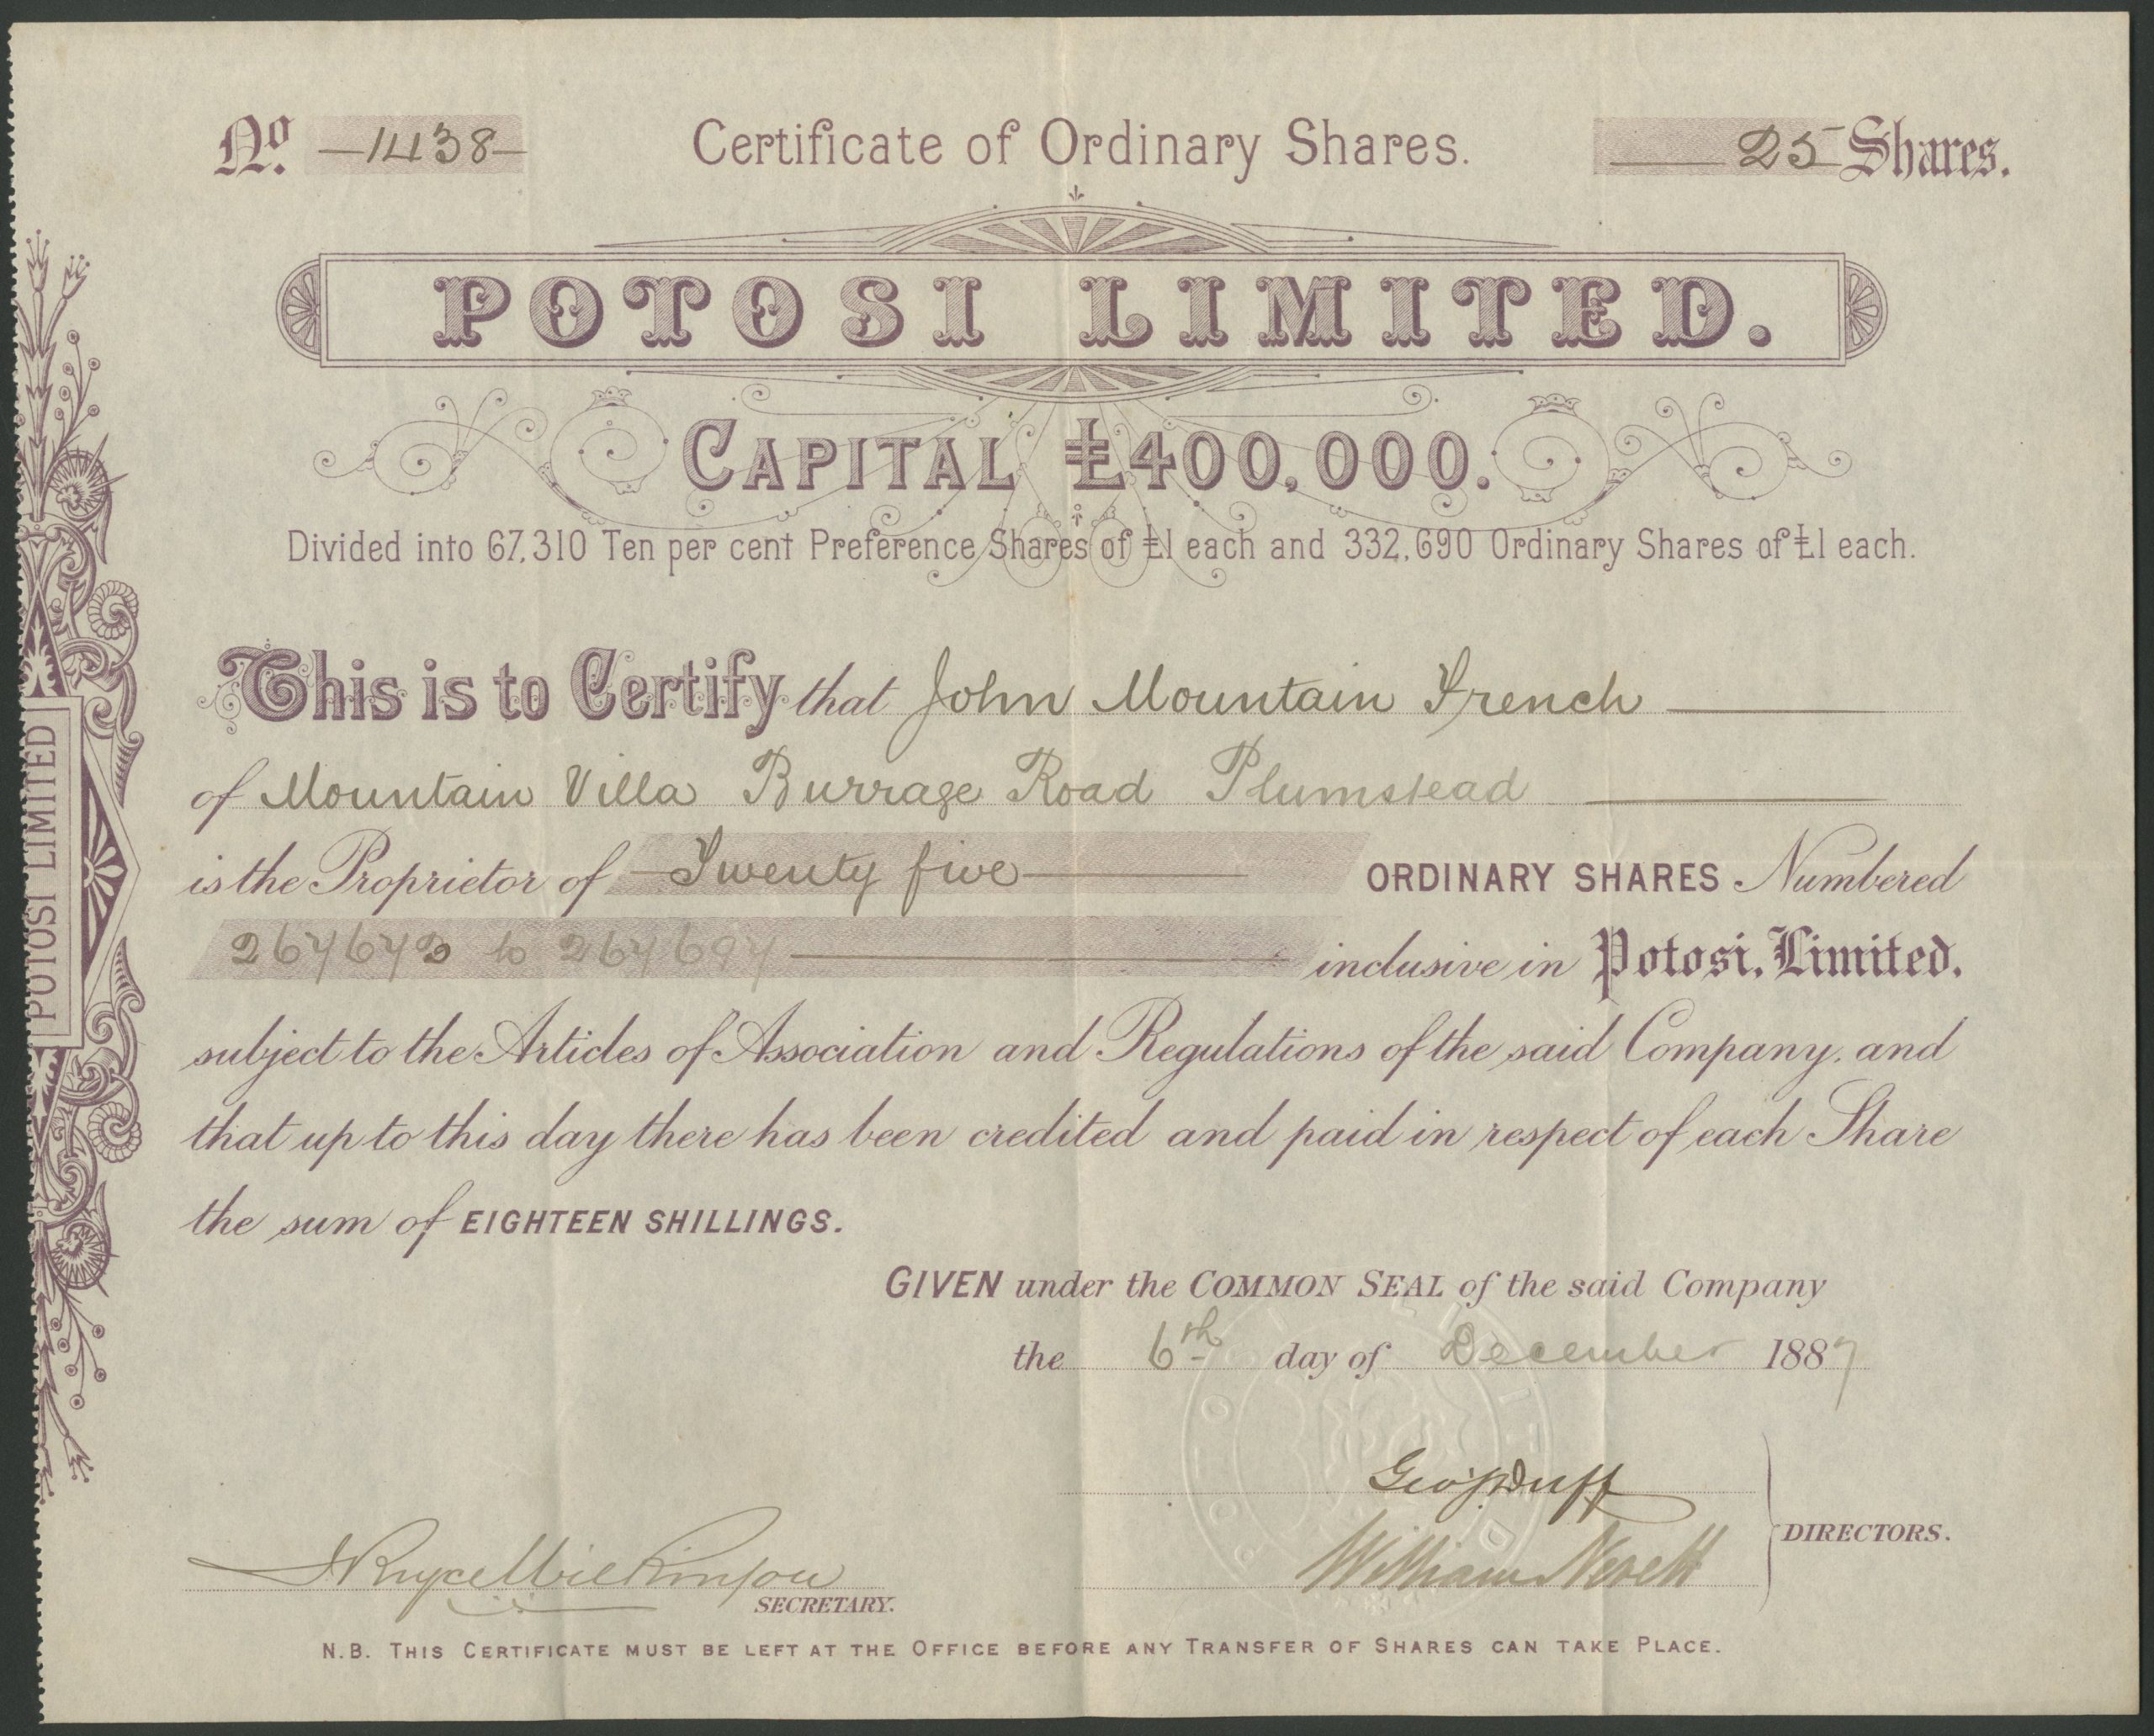 No. 1438
Certificate of Ordinary Shares.
25 Shares.
POTOSI LIMITED.
CAPITAL £400,000.
Divided into 67,310 Ten per cent Preference Shares of £1 each and 332,690 Ordinary Shares of £1 each.
This is to Certify that John Mountain French
of Mountain Villa Burrage Road Plumstead
is the Proprietor of Twenty five ORDINARY SHARES Numbered
267673 to 267697 inclusive in Potosi, Limited,
subject to the Articles of Association and Regulations of the said Company, and
that up to this day there has been credited and paid in respect of each Share
the sum of EIGHTEEN SHILLINGS.
GIVEN under the COMMON SEAL of the said Company
the 6th day of December 1887
Duff
William
DIRECTORS.
Wilkinson
SECRETARY.
N.B. THIS CERTIFICATE MUST BE LEFT AT THE OFFICE BEFORE ANY TRANSFER OF SHARES CAN TAKE PLACE.
POTOSI LIMITED